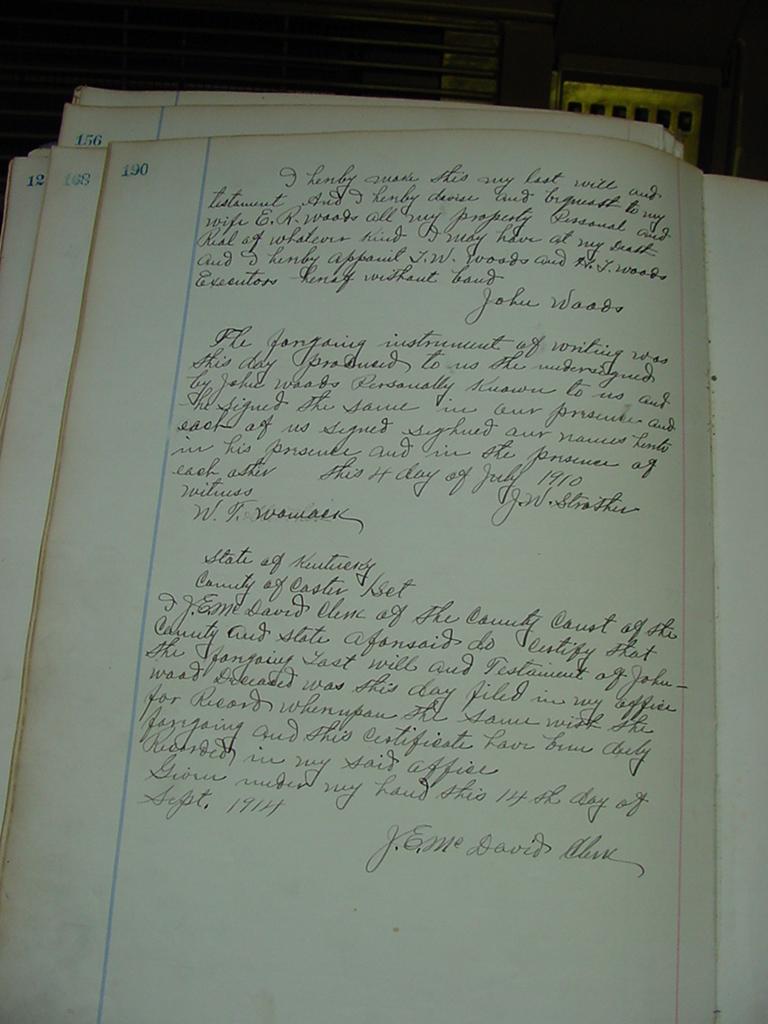 156
12
168
190
I herby make this my last will and
testament And I herby devise and bequeast to my
wife E. R. Woods all my property Personal and
Real of whatever Kind I may have at my Death
and I herby appoint J. W. Woods and H. J. Woods
Executors herof without bond
John Woods
The forgoing instrument of writing was
this day produced to us the undersigned
by John Woods Personally Known to us and
he signed the same in our presence and
each of us signed sighned our names herto
in his presence and in the presence of
each other this 4 day of July 1910
Witness J. W. Strother
W. T. Womack
State of Kentucky
County of Carter Sct
I J. E. McDavid Clerk of the County Court of the
County and state aforesaid do certify that
the forgoing Last will and Testament of John
wood Deceased was this day filed in my office
for Record whereupon the same with the
forgoing and this certificate have been duly
Recorded in my said office
Given under my hand this 14th day of
Sept. 1914
J. E. McDavid Clerk